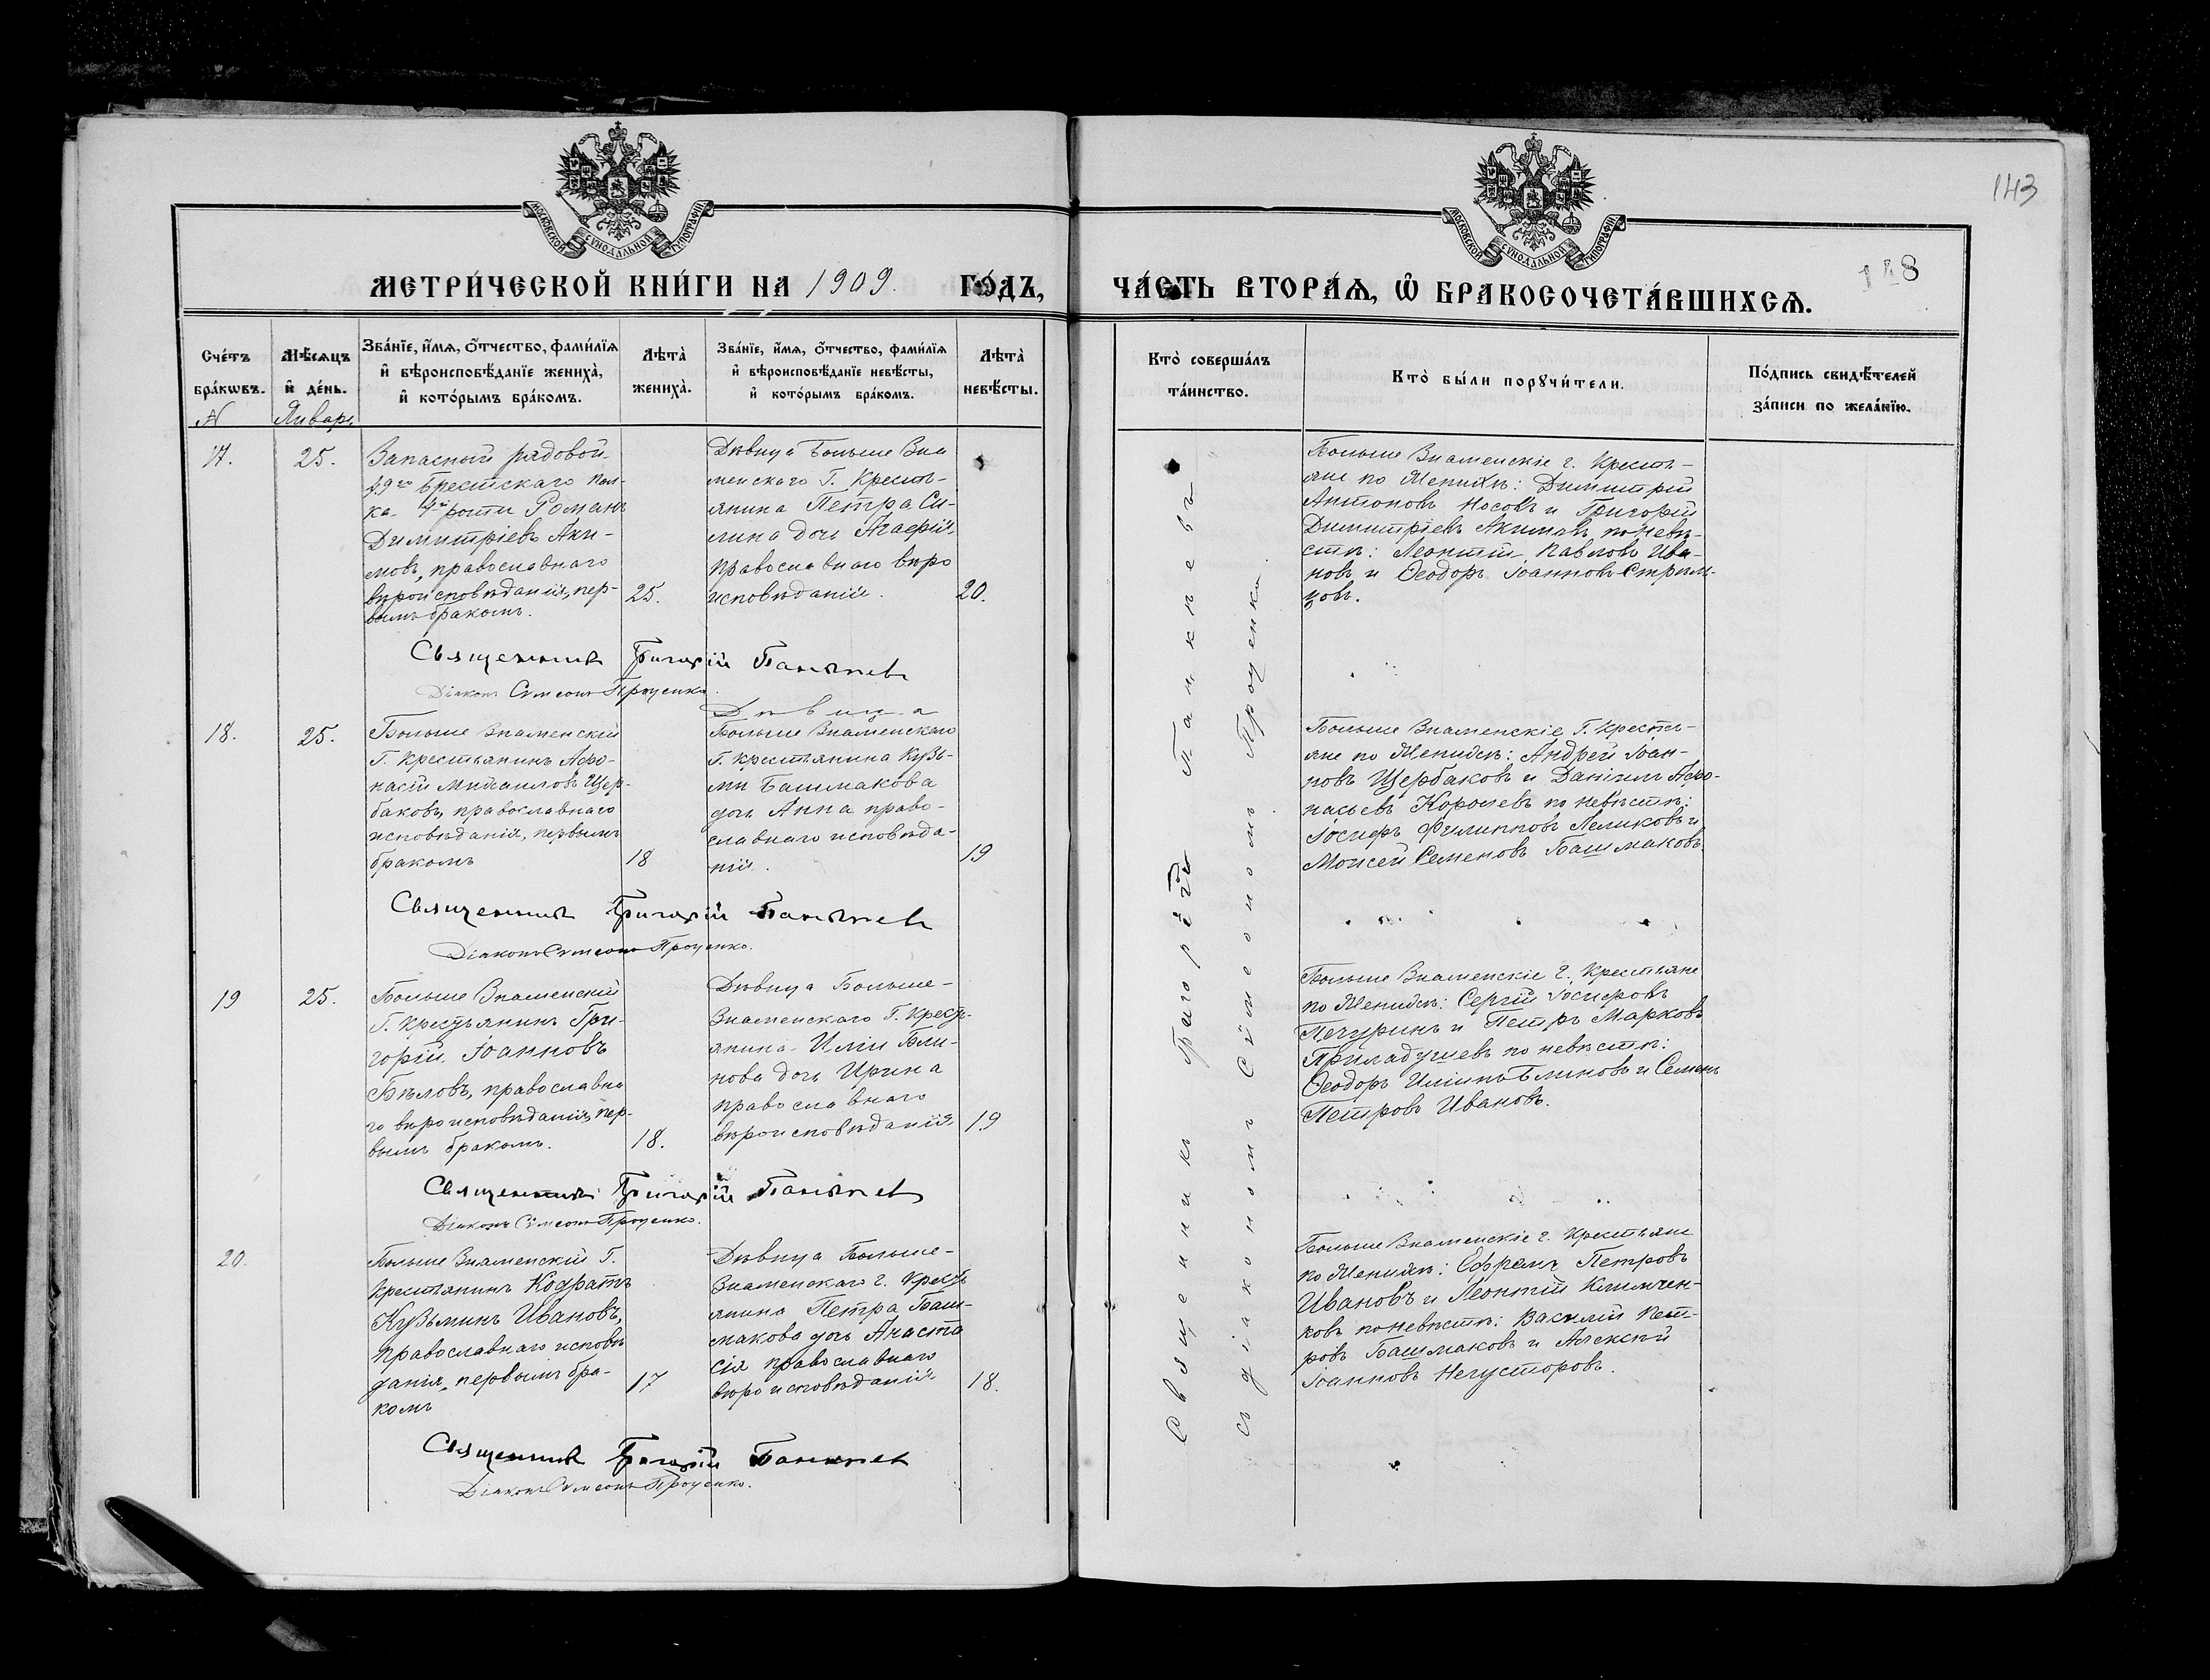 143
148
МОСКОВСКОЙ СѴНОДАЛЬНОЙ ТИПОГРАФІИ
МОСКОВСКОЙ СѴНОДАЛЬНОЙ ТИПОГРАФІИ
МЕТРИ́ЧЕСКОЙ КНИ́ГИ НА 1909. ГО́ДЪ,
ЧА́СТЬ ВТОРА́Ѧ, Ѽ БРАКОСОЧЕТА́ВШИХСѦ.
Сче́тъ бра́кѡвъ.
Мѣ́сѧцъ и҆ де́нь.
Зва́нїе, и҆́мѧ, ѻ҆́тчество, фами́лїѧ
и҆ вѣроисповѣ́данїе жениха̀,
и҆ кото́рымъ бра́комъ.
Лѣта̀ жениха̀.
Зва́нїе, и҆́мѧ, ѻ҆́тчество, фами́лїѧ
и҆ вѣроисповѣ́данїе невѣ́сты,
и҆ кото́рымъ бра́комъ.
Лѣта̀ невѣ́сты.
Кто̀ соверша́лъ та́инство.
Кто̀ бы́ли порꙋчи́тели.
По́дпись свидѣ́телей
за́писи по жела́нїю.
N
Январь
17.
25.
Запасный рядовой
49го Брестскаго Пол-
ка 4й роты Романъ
Димитріевъ Аки-
мовъ, православнаго
вѣроисповѣданія, пер-
вымъ бракомъ.
25.
Дѣвица Больше Зна
менскаго Г. Кресть-
янина Петра Си-
лина дочь Агафія,
православнаго вѣро
исповѣданія.
20.
Больше Знаменскіе г. Кресть-
яне по Женихѣ: Димитрій
Антоновъ Носовъ и Григорій
Димитріевъ Акимовъ, по невѣ-
стѣ: Леонтій Павловъ Ива-
новъ и Ѳеодоръ Іоанновъ Стрѣль-
цовъ.
Священникъ Григорій Панкѣевъ
Діаконъ Сѵмеонъ Проценко.
18.
25.
Больше Знаменскій
Г. Крестьянинъ Афо-
насій Михаиловъ Щер-
баковъ, православнаго
исповѣданія, первымъ
бракомъ
18
Дѣвица
Больше Знаменскаго
Г. крестьянина Кузь-
мы Башмакова
дочь Анна право-
славнаго исповѣда-
нія.
19
Больше Знаменскіе Г. Кресть-
яне по Женихѣ: Андрей Іоан-
новъ Щербаковъ и Даніилъ Афо-
насьевъ Королевъ по невѣстѣ:
Іосифъ Филипповъ Леликовъ и
Моисей Семеновъ Башмаковъ
Священникъ Григорій Панкѣевъ
Діаконъ Сѵмеонъ Проценко.
19
25.
Больше Знаменскій
Г. Крестьянинъ Гри-
горій Іоанновъ
Бѣловъ, православна
го вѣроисповѣданія, пер-
вымъ бракомъ.
18.
Дѣвица Больше-
Знаменскаго Г. Кресть-
янина Иліи Бли-
нова дочь Ирина
православнаго
вѣроисповѣданія
19
Больше Знаменскіе г. Крестьяне
по Женихѣ: Сергій Іосифовъ
Печуринъ и Петръ Марковъ
Приладушевъ по невѣстѣ:
Ѳеодоръ Иліинъ Блиновъ и Семенъ
Петровъ Ивановъ.
Священникъ Григорій Панкѣевъ
Діаконъ Сѵмеонъ Проценко.
20.
Больше Знаменскій Г.
Крестьянинъ Кодратъ
Кузьминъ Ивановъ,
православнаго исповѣ
данія, первымъ бра-
комъ
17
Дѣвица Больше-
Знаменскаго г. Кресть
янина Петра Баш-
макова дочь Анаста
сія православнаго
вѣроисповѣданія
18.
Больше Знаменскіе г. Крестьяне
по Женихѣ: Ефремъ Петровъ
Ивановъ и Леонтій Климчен-
ковъ по невѣстѣ: Василій Пет-
ровъ Башмаковъ и Алексѣй
Іоанновъ Негусторовъ.
Священникъ Григорій Панкѣевъ
Діаконъ Сѵмеонъ Проценко.
Священникъ Григорій Панкѣевъ
съ діакономъ Сѵмеономъ Проценко.